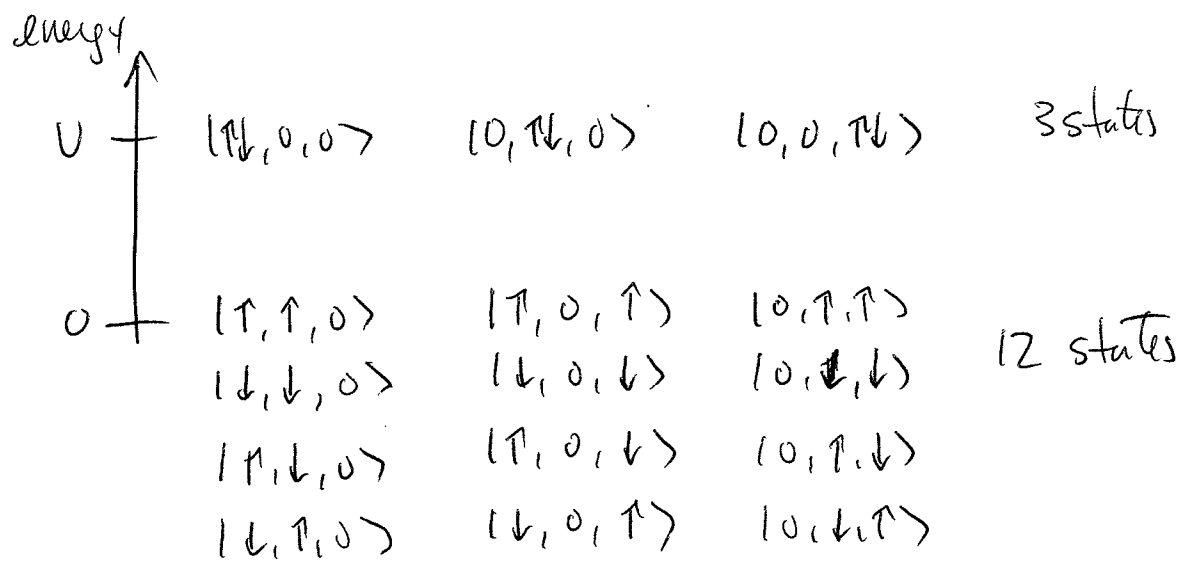 energy
U |↑↓, 0, 0⟩ |0, ↑↓, 0⟩ |0, 0, ↑↓⟩ 3 states
0 |↑, ↑, 0⟩ |↑, 0, ↑⟩ |0, ↑, ↑⟩
|↓, ↓, 0⟩ |↓, 0, ↓⟩ |0, ↓, ↓⟩ 12 states
|↑, ↓, 0⟩ |↑, 0, ↓⟩ |0, ↑, ↓⟩
|↓, ↑, 0⟩ |↓, 0, ↑⟩ |0, ↓, ↑⟩